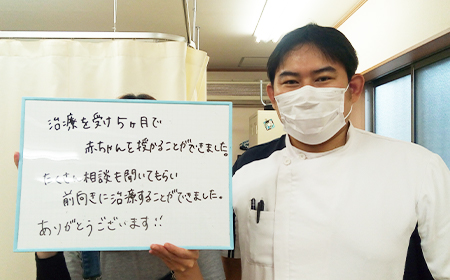 治療を受け5ヶ月で
赤ちゃんを授かることができました。
たくさん相談も聞いてもらい
前向きに治療することができました。
ありがとうございます!!